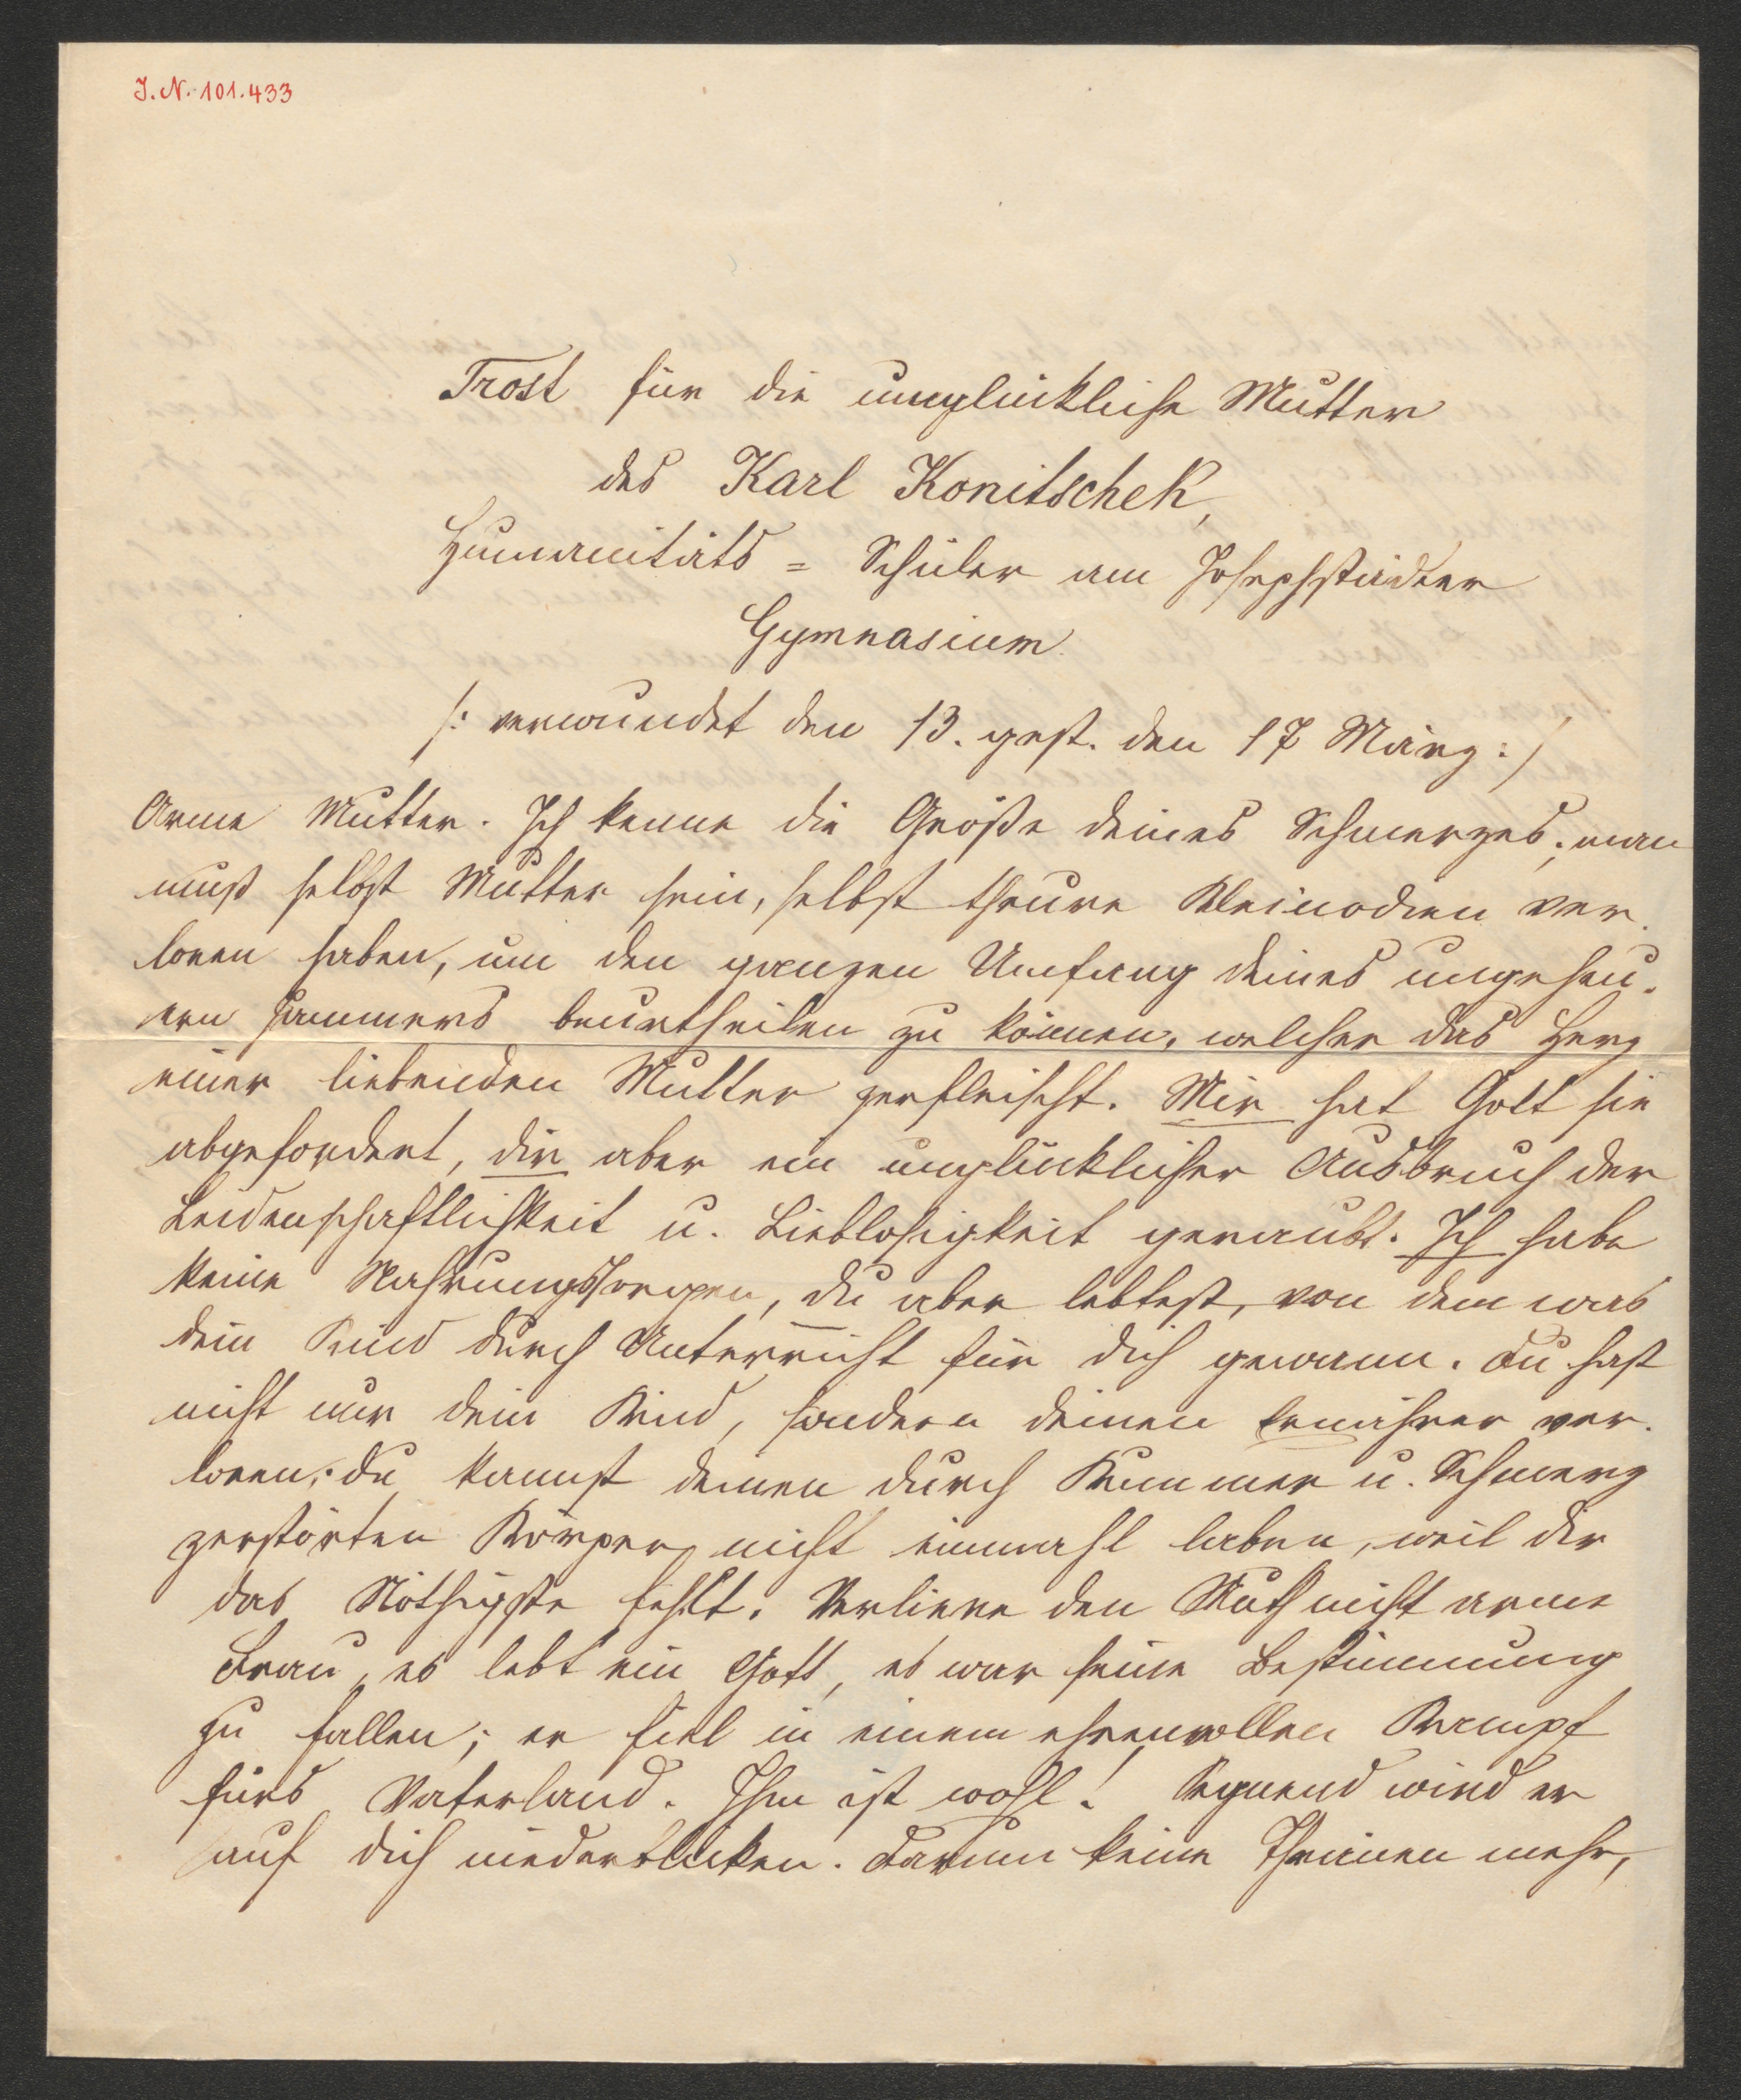 J. N. 101.433
Trost für die unglückliche Mutter
des Karl Konitschek,
Humanitäts = Schüler am Josephstädter
Gymnasium.
/: verwundet den 13. gest. den 17 März :/
Arme Mutter. Ich kenne die Größe deines Schmerzes; man
muß selbst Mutter sein, selbst theure Kleinodien ver¬
loren haben, um den ganzen Umfang deines ungeheu¬
ren Jammers beurtheilen zu können, welcher das Herz
einer liebenden Mutter zerfleischt. Mir hat Gott sie
abgefordert, dir aber ein unglücklicher Ausbruch der
Leidenschaftlichkeit u. Lieblosigkeit geraubt. Ich habe
keine Nahrungssorgen, du aber lebtest, von dem was
dein Kind durch Unterricht für dich gewann. Du hast
nicht nur dein Kind, sondern deinen Ernährer ver¬
loren; du kannst deinen durch Kummer u. Schmerz
zerstörten Körper nicht einmahl laben, weil dir
das Nöthigste fehlt. Verliere den Muth nicht arme
Frau, es lebt ein Gott, es war seine Bestimmung
zu fallen; er fiel in einem ehrenvollen Kampf
fürs Vaterland. Ihm ist wohl! Segnend wird er
auf dich niederblicken. Darum keine Thränen mehr,